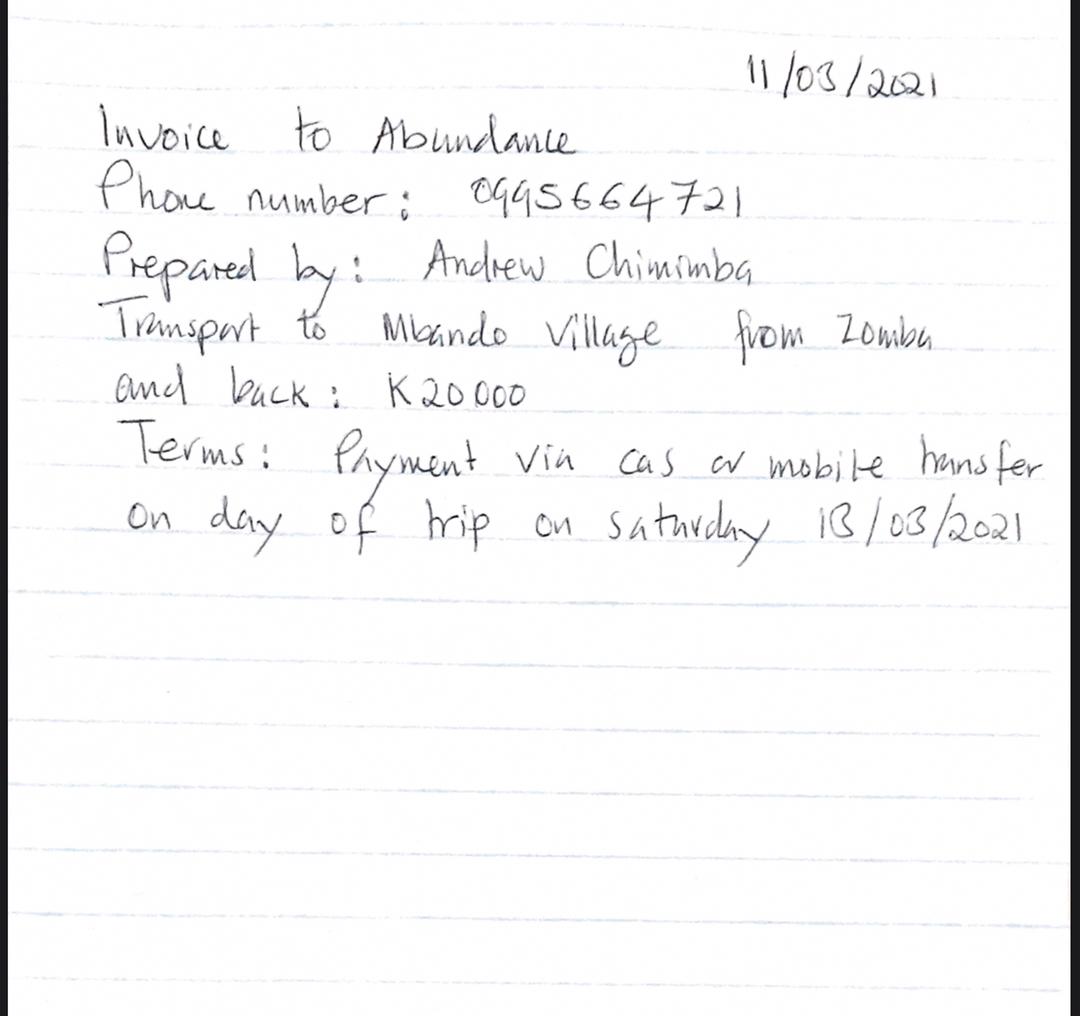 11/03/2021
Invoice to Abundance
Phone number: 0995664721
Prepared by: Andrew Chimimba
Transport to Mbando Village from Zomba
and back: K20000
Terms: Payment via cas or mobile transfer
on day of trip on saturday 13/03/2021